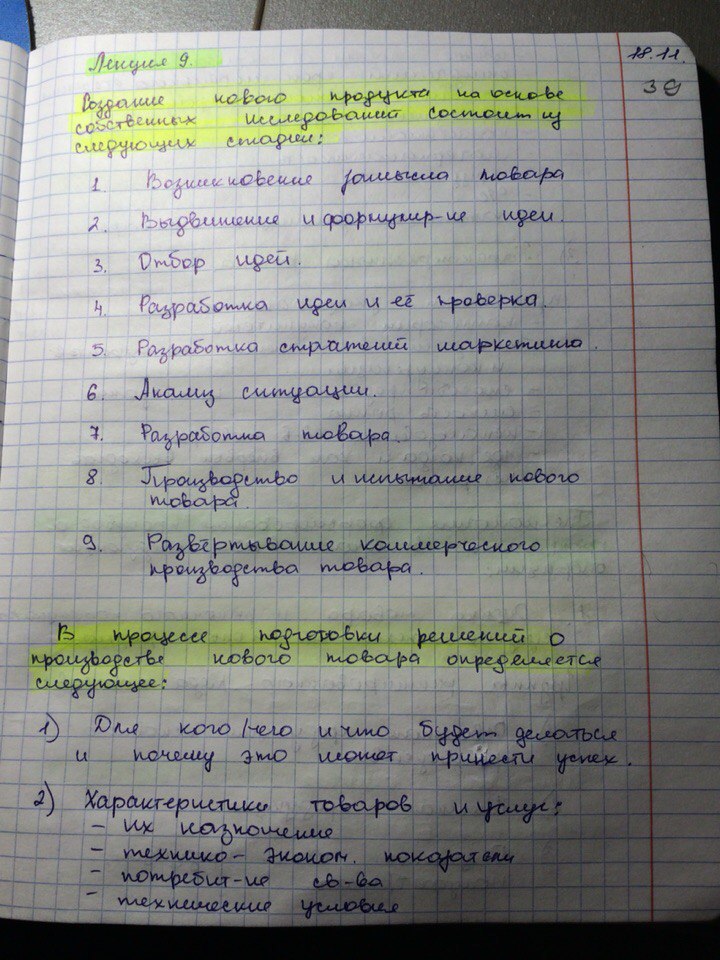 Лекция 9.
18.11.
39
Создание нового продукта на основе
собственных исследований состоит из
следующих стадий:
1. Возникновение замысла товара
2. Выдвижение и формулир-ие идеи.
3. Отбор идей.
4. Разработка идеи и её проверка.
5. Разработка стратегий маркетинга.
6. Анализ ситуации.
7. Разработка товара.
8. Производство и испытание нового
товара.
9. Развёртывание коммерческого
производства товара.
В процессе подготовки решений о
производстве нового товара определяется
следующее:
1) Для кого/чего и что будет делаться
и почему это может принести успех.
2) Характеристики товаров и услуг:
- их назначение
- технико-эконом. показатели
- потребит-ие св-ва
- технические условия